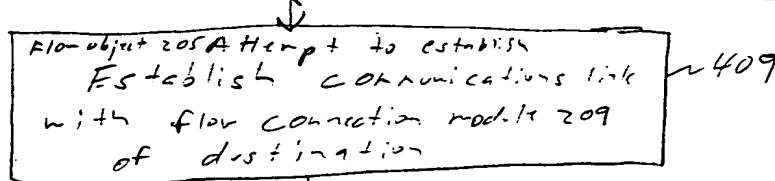 Flow object 205 Attempt to establish
Establish communications link
with flow connection module 209
of destination
409